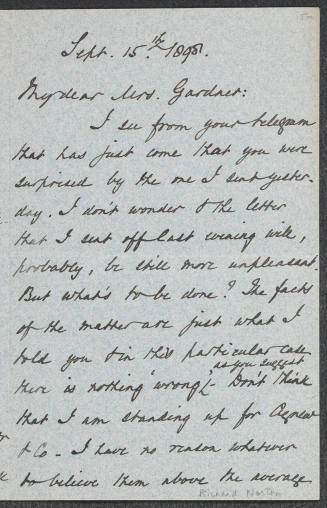 Sept. 15.th 1898.
My dear Mrs. Gardner:
I see from your telegram
that has just come that you were
surprised by the one I sent yester-
day. I don't wonder & the letter
that I sent off last evening will,
probably, be still more unpleasant.
But what's to be done? The facts
of the matter are just what I
told you & in this particular case
as you suggest
there is nothing "wrong". - Don't think
that I am standing up for Agnew
& Co - I have no reason whatever
to believe them above the average
Richard Norton